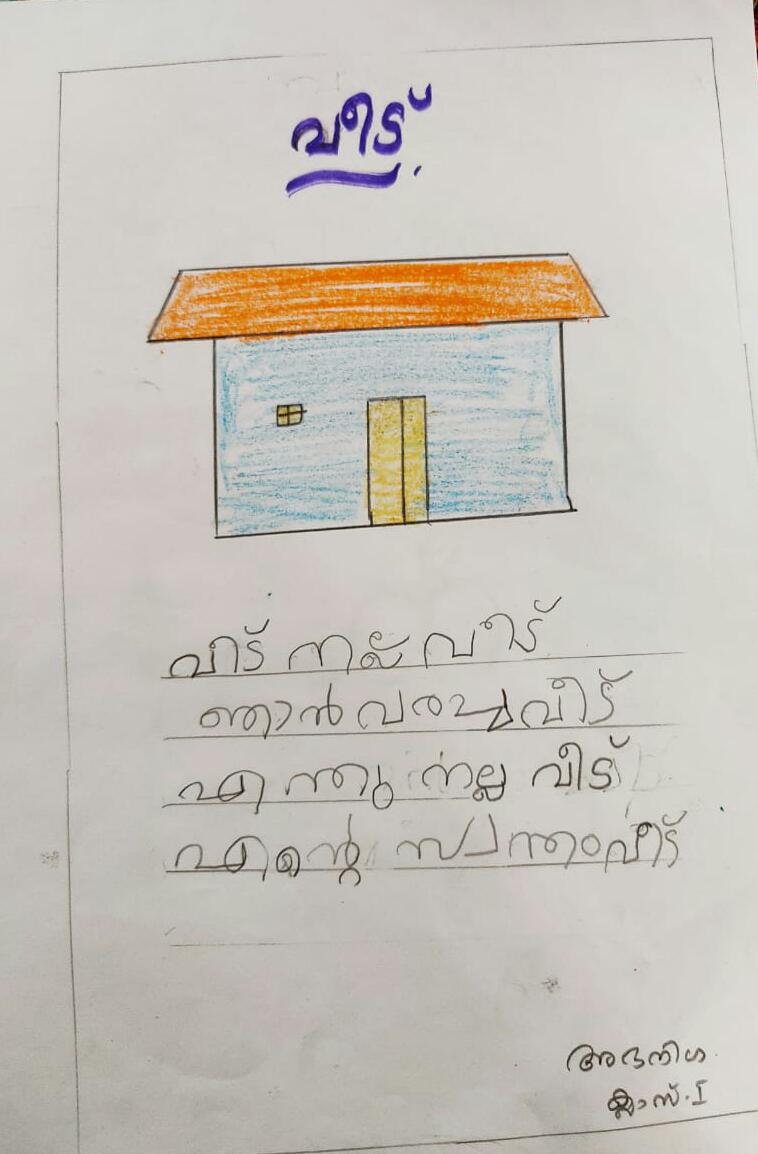 വീട്
വീട് നല്ല വീട്
ഞാൻ വരച്ച വീട്
എന്തു നല്ല വീട്
എന്റെ സ്വന്തം വീട്
ക്ലാസ്.I